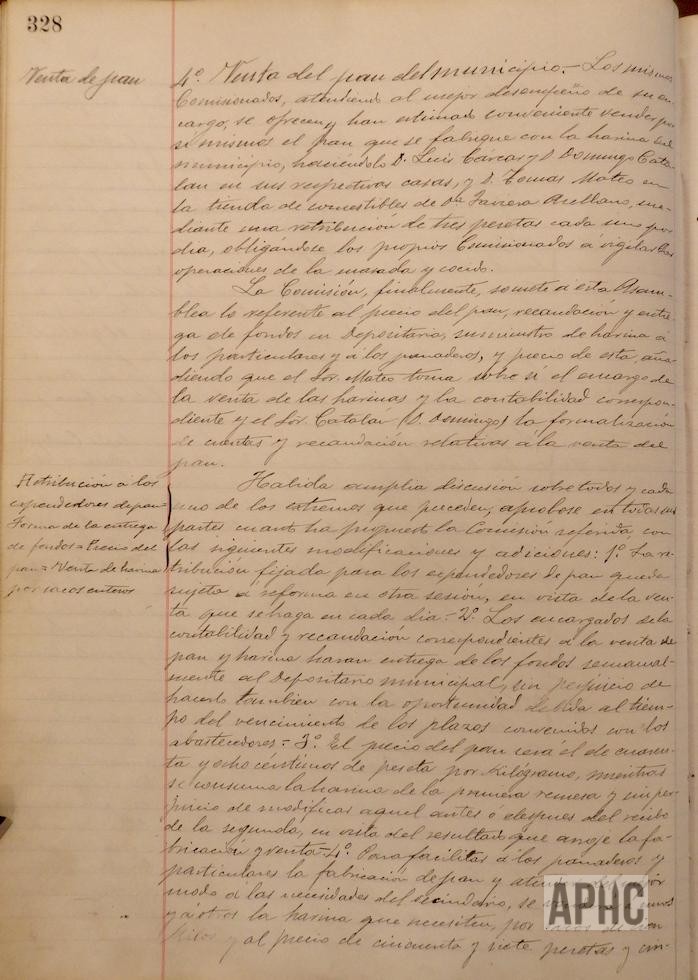 328
Venta de pan
4º. Venta del pan del municipio.- Los mismos
Comisionados, atendiendo al mejor desempeño de su en-
cargo, se ofrecen y han estimado conveniente vender por
si mismos el pan que se fabrique con la harina del
municipio, haciéndolo D. Luis Cárcar y D. Domingo Cata-
lan en sus respectivas casas, y D. Tomas Mateo en
la tienda de comestibles de Dª Javiera Arellano, me-
diante una retribución de tres pesetas cada uno por
dia, obligándose los propios Comisionados á vigilar las
operaciones de la masada y cocido.
La Comisión, finalmente, somete á esta Asam-
blea lo referente al precio del pan, recaudación y entre-
ga de fondos en Depositaria, suministro de harina á
los particulares y á los panaderos, y precio de esta, aña-
diendo que el Sor. Mateo toma sobre sí el encargo de
la venta de las harinas y la contabilidad correspon-
diente y el Sor. Catalán (D. Domingo) la formalización
de cuentas y recaudación relativas á la venta del
pan.
Retribución á los
expendedores de pan=
Forma de la entrega
de fondos = Precio del
pan = Venta de harina
por sacos enteros
Habida amplia discusión sobre todos y cada
uno de los extremos que preceden, aprobose en todas sus
partes cuanto ha propuesto la Comisión referida con
las siguientes modificaciones y adiciones: 1º. La re-
tribución fijada para los expendedores de pan queda
sujeta á reforma en otra sesión, en vista de la ven-
ta que se haga en cada dia.- 2º. Los encargados de la
contabilidad y recaudación correspondientes á la venta de
pan y harina haran entrega de los fondos semanal-
mente al Depositario municipal, sin perjuicio de
hacerlo tambien con la oportunidad debida al tiem-
po del vencimiento de los plazos convenidos con los
abastecedores.- 3º. El precio del pan será el de cuaren-
ta y ocho céntimos de peseta por kilógramo, mientras
se consuma la harina de la primera remesa y sin per-
juicio de modificar aquel antes ó despues del recibo
de la segunda, en vista del resultado que arroje la fa-
bricación y venta.- 4º. Para facilitar á los panaderos y
particulares la fabricación de pan y atender del mejor
modo á las necesidades del vecindario, se á unos
y á otros la harina que necesiten, por sacos de
kilos y al precio de cincuenta y siete pesetas y cin-
APHC